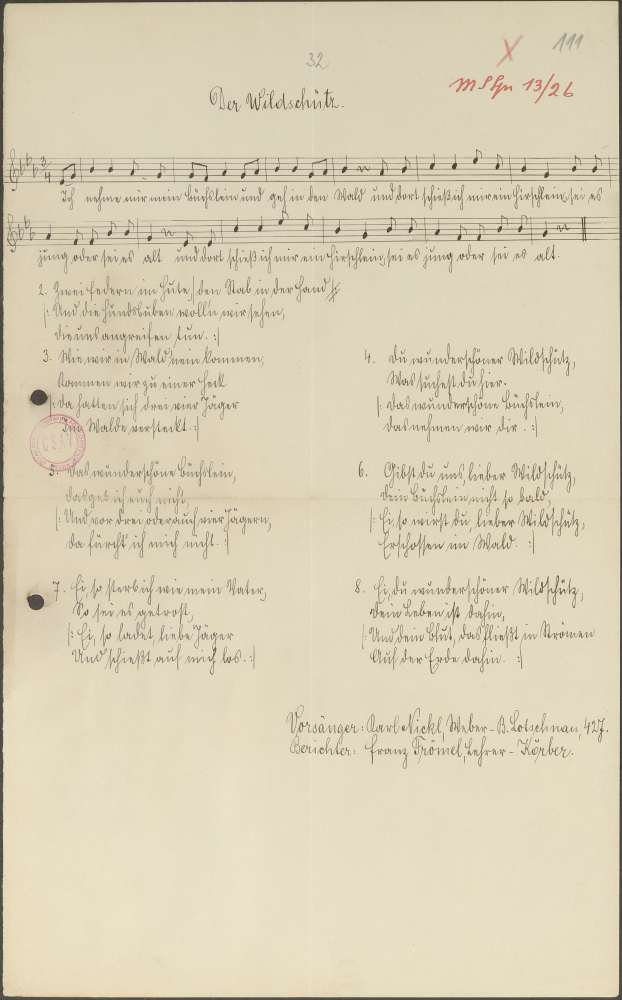 32
X 111
MSGn 13/26
Der Wildschütz.
3/4
Ich nehme mir mein Büchslein und geh in den Wald und dort schieß ich mir ein Hirschlein, sei es
jung oder sei es alt und dort schieß ich mir ein Hirschlein, sei es jung oder sei es alt.
2. Zwei Federn im Hute, den Stab in der Hand
/: Und die Hundsbuben wolln wir sehen,
die uns angreifen tun. :/
3. Wie wir in Wald nein kommen,
Kommen wir zu einer Heck
/: Da hatten sich drei vier Jäger
Im Walde versteckt :/
4. Du wunderschöner Wildschütz,
Was suchest du hier.
/: Das wunderschöne Büchslein,
das nehmen wir dir. :/
5. Das wunderschöne Büchslein,
das geb ich euch nicht,
/: Und vor drei oder auch vier Jägern,
da fürcht' ich mich nicht. :/
6. Gibst du uns, lieber Wildschütz,
dein Büchslein nicht so bald,
/: Ei, so wirst du, lieber Wildschütz,
Erschossen im Wald. :/
7. Ei, so sterb ich wie mein Vater,
So sei es getrost,
/: Ei, so ladet, liebe Jäger
Und schießt auf mich los. :/
8. Ei, du wunderschöner Wildschütz,
dein Leben ist dahin,
/: Und dein Blut, das fließt in Strömen
Auf der Erde dahin. :/
Vorsänger: Karl Nickl, Weber - B. Lotschnau 427.
Berichter: Franz Trömel, Lehrer - Körber.